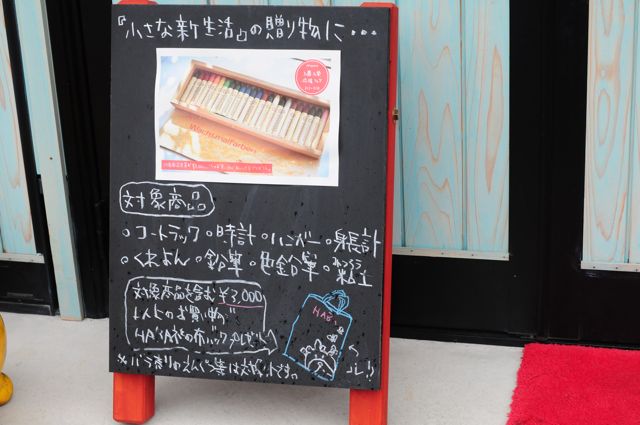 『小さな新生活』の贈り物に…
Wachsmalfarben
対象商品
○コートラック ○時計 ○ハンガー ○身長計
○くれよん ○鉛筆 ○色鉛筆 ○みつろう粘土
対象商品を含む ¥3,000
以上のお買い物で
HABA社の布バックプレゼント
HABA
コレ!!
※バラ売りのえんぴつ等は対象外です。